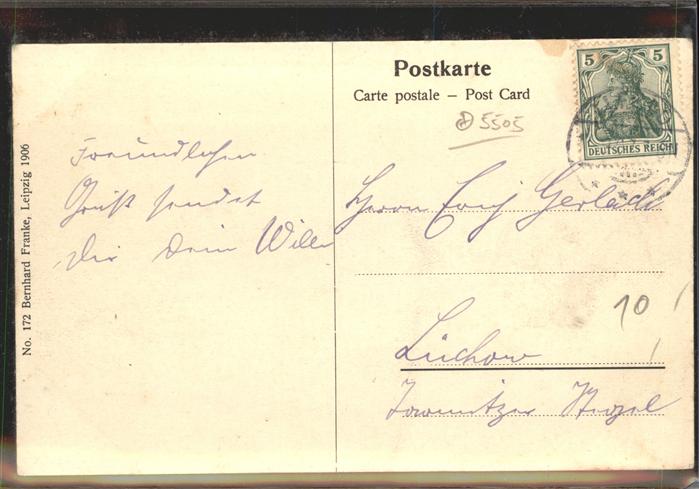 Postkarte
Carte postale – Post Card
5505
5 5
DEUTSCHES REICH
No. 172 Bernhard Franke, Leipzig 1906
Freundlichen
Gruß sendet
Dir Dein Willi
Herrn Erich Gerlach
10
Lüchow